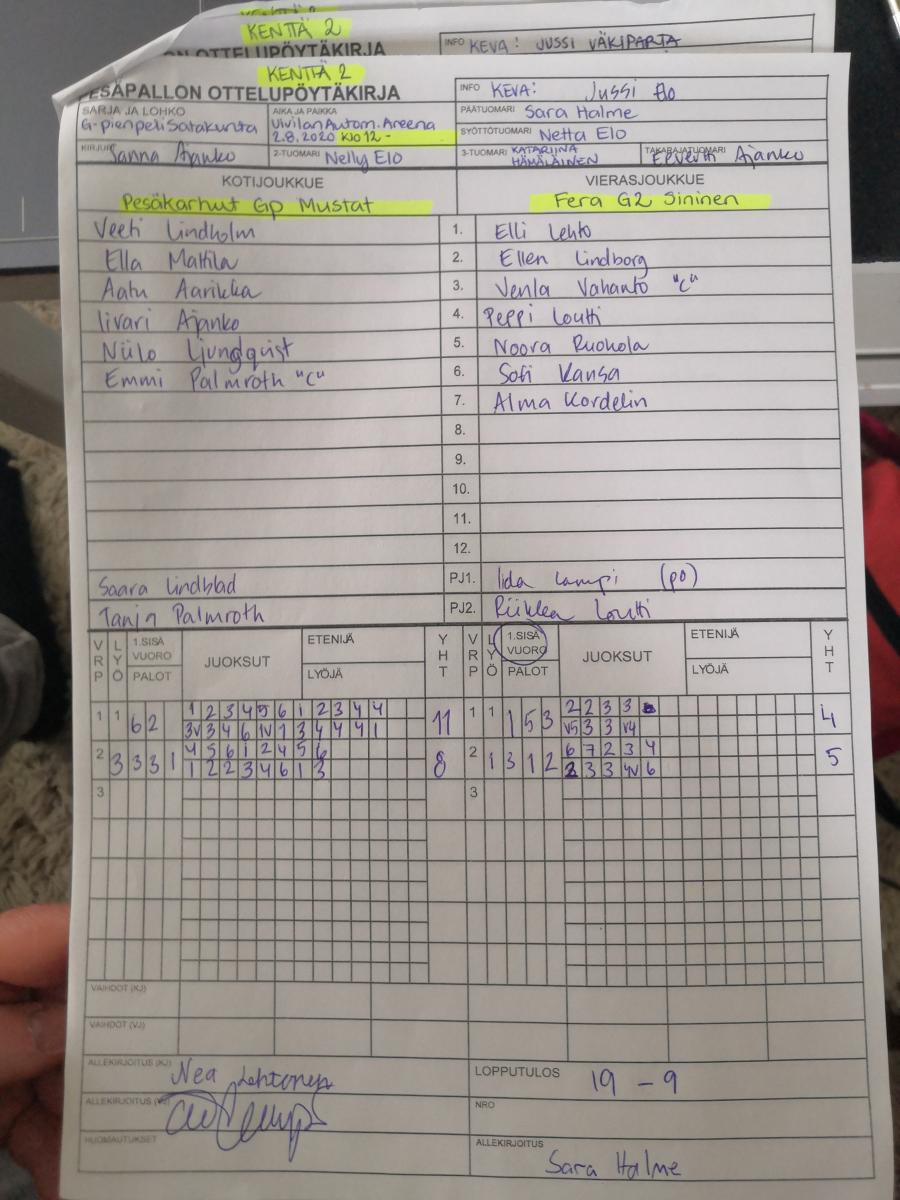 KENTTÄ 2
ON OTTELUPÖYTÄKIRJA
INFO KEVA: JUSSI VÄKIPARTA
KENTTÄ 2
PESÄPALLON OTTELUPÖYTÄKIRJA
INFO KEVA: Jussi Elo
SARJA JA LOHKO G-pienpeli Satakunta
AIKA JA PAIKKA Vivilan Autom. Areena
2.8.2020 Klo 12-
PÄÄTUOMARI Sara Halme
SYÖTTÖTUOMARI Netta Elo
KIRJURI Sanna Ajanko
2-TUOMARI Nelly Elo
3-TUOMARI KATARIINA HÄMÄLÄINEN
TAKARAJATUOMARI Ajanko
KOTIJOUKKUE
VIERASJOUKKUE
Pesäkarhut Gp Mustat
Fera G2 Sininen
Veeti Lindholm 1. Elli Lehto
Ella Mattila 2. Ellen Lindborg
Aatu Aarikka 3. Venla Vahanto "C"
Iivari Ajanko 4. Peppi Loutti
Niilo Ljungqvist 5. Noora Ruohola
Emmi Palmroth "C" 6. Sofi Kansa
7. Alma Kordelin
8.
9.
10.
11.
12.
Saara Lindblad PJ1. Iida Lampi (po)
Tanja Palmroth PJ2. Riikka Loutti
VRP LYÖ 1.SISÄ VUORO PALOT JUOKSUT ETENIJÄ LYÖJÄ YHT VRP LYÖ 1.SISÄ VUORO PALOT JUOKSUT ETENIJÄ LYÖJÄ YHT
1 1 6 2 1 2 3 4 5 6 1 2 3 4 4 11 1 1 1 5 3 2 2 3 3 4
3V 3 4 6 1V 1 3 4 4 4 1 V5 3 3 V4
2 3 3 3 1 4 5 6 1 2 4 5 6 8 2 1 3 1 2 6 7 2 3 4 5
1 2 2 3 4 6 1 3 2 3 3 4V 6
3 3
VAIHDOT (KJ)
VAIHDOT (VJ)
ALLEKIRJOITUS (KJ) Nea Lehtonen
LOPPUTULOS 19 - 9
ALLEKIRJOITUS (VJ)
NRO
HUOMAUTUKSET
ALLEKIRJOITUS Sara Halme